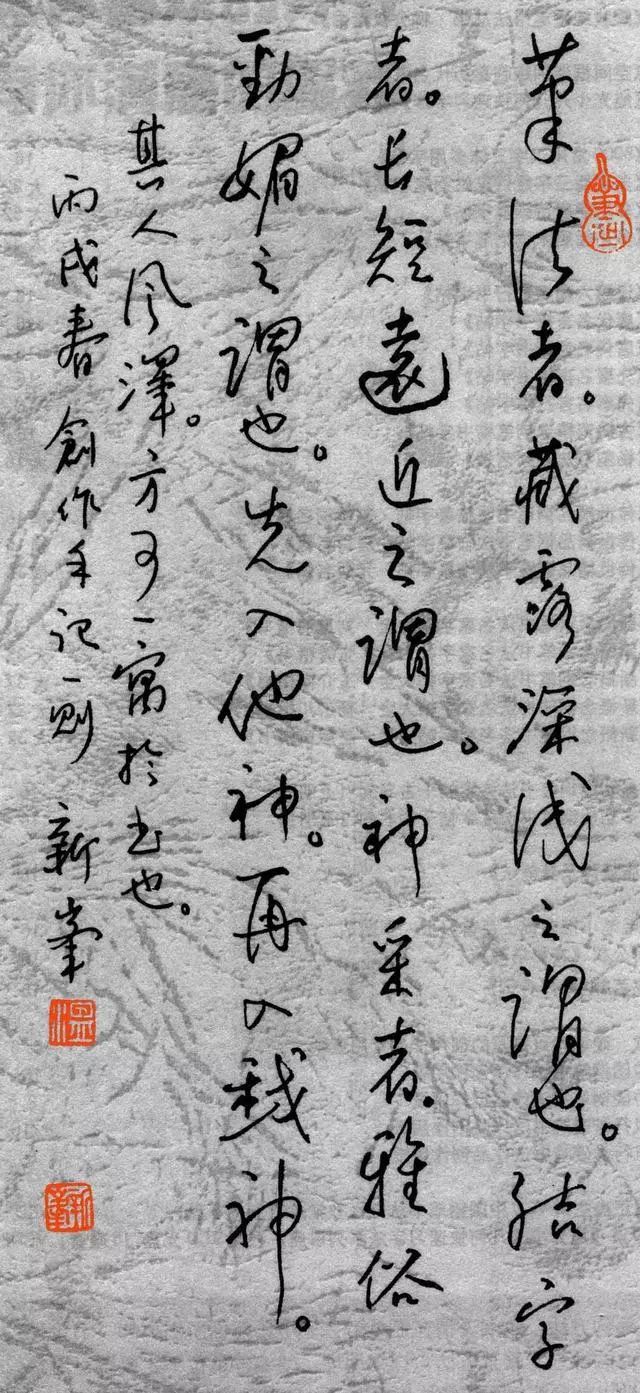 筆法者。藏露深浅之謂也。结字
者。长短遠近之謂也。神采者。雅俗
勁媚之謂也。先入他神。再入我神。
其人风澤。方可一寓於书也。
丙戌春創作手记一则 新峯
温